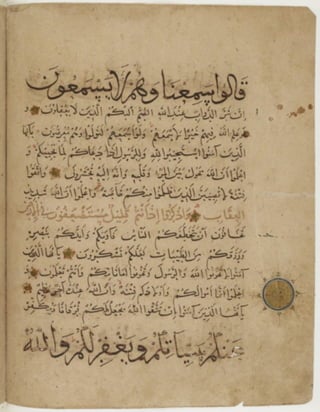 قالوا سمعنا وهم لا يسمعون
إن شر الدواب عند الله الصم البكم الذين لا يعقلون ولو
علم الله فيهم خيرا لأسمعهم ولو أسمعهم لتولوا وهم معرضون يا أيها
الذين آمنوا استجيبوا لله وللرسول إذا دعاكم لما يحييكم و
اعلموا أن الله يحول بين المرء وقلبه وأنه إليه تحشرون واتقوا
فتنة لا تصيبن الذين ظلموا منكم خاصة واعلموا أن الله شديد
العقاب واذكروا إذ أنتم قليل مستضعفون في الأرض
تخافون أن يتخطفكم الناس فآواكم وأيدكم بنصره
ورزقكم من الطيبات لعلكم تشكرون يا أيها الذين
آمنوا لا تخونوا الله والرسول وتخونوا أماناتكم وأنتم تعلمون و
اعلموا أنما أموالكم وأولادكم فتنة وأن الله عنده أجر عظيم
يا أيها الذين آمنوا إن تتقوا الله يجعل لكم فرقانا ويكفر
عنكم سيئاتكم ويغفر لكم والله